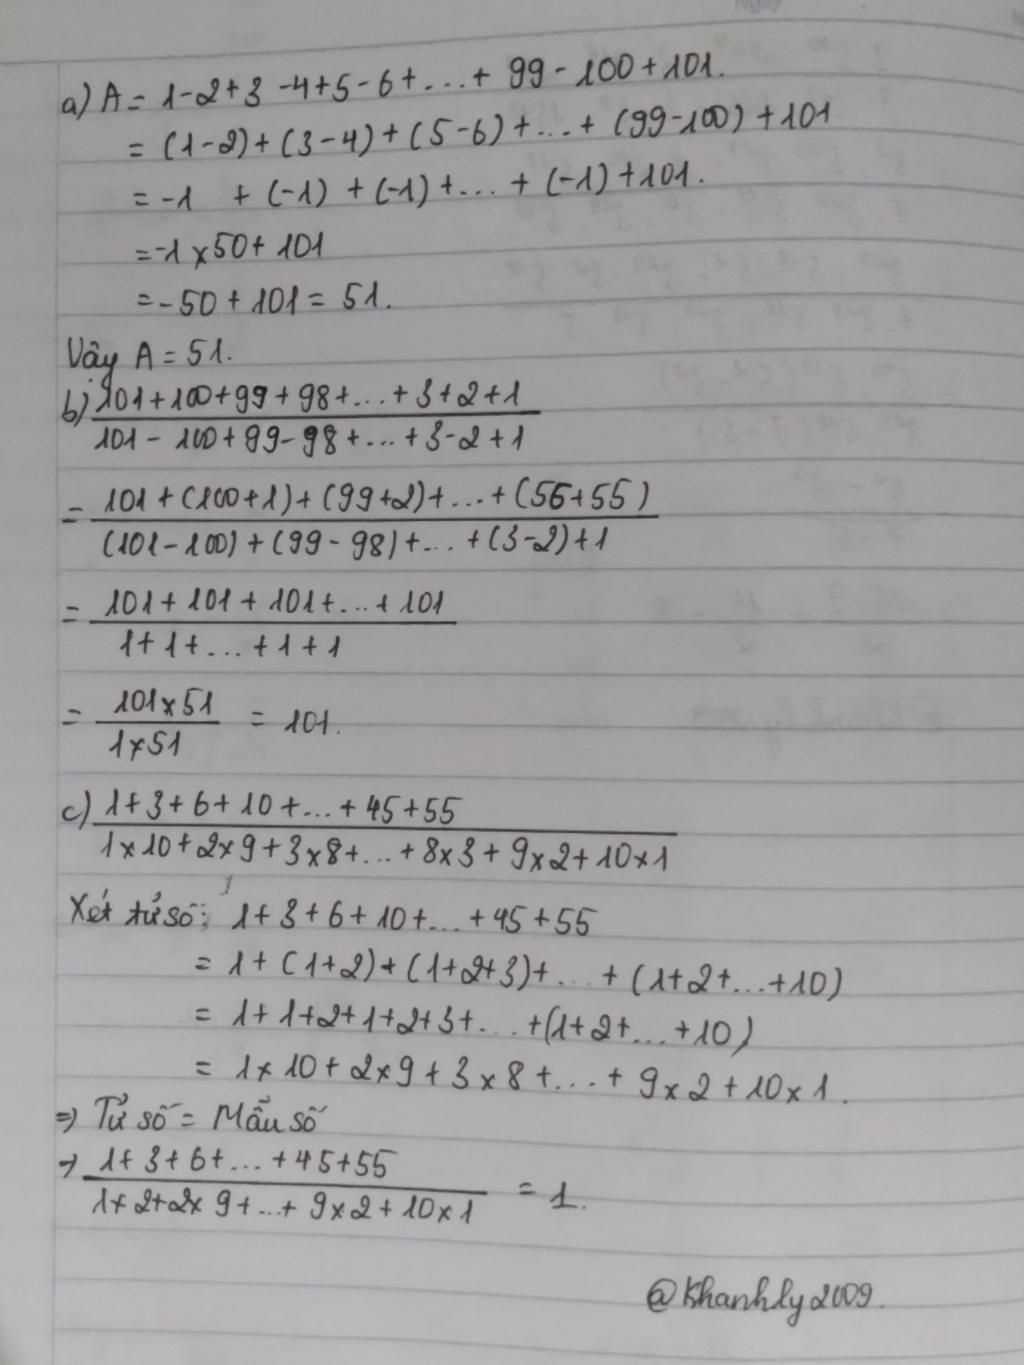 a) A = 1-2+3-4+5-6+...+ 99-100+101.
= (1-2)+(3-4)+(5-6)+...+(99-100)+101
= -1 + (-1) + (-1) +... + (-1) +101.
= -1 x 50 + 101
= -50 + 101 = 51.
Vậy A = 51.
b) 101+100+99+98+...+3+2+1
101-100+99-98+...+3-2+1
= 101+(100+1)+(99+2)+...+(56+55)
(101-100)+(99-98)+...+(3-2)+1
= 101+101+101+...+101
1+1+...+1+1
= 101x51 = 101.
1x51
c) 1+3+6+10+...+45+55
1x10+2x9+3x8+...+8x3+9x2+10x1
Xét tử số: 1+3+6+10+...+45+55
= 1+(1+2)+(1+2+3)+...+(1+2+...+10)
= 1+1+2+1+2+3+...+(1+2+...+10)
= 1x10+2x9+3x8+...+9x2+10x1.
=> Tử số = Mẫu số
→ 1+3+6+...+45+55 = 1.
1x2+2x9+...+9x2+10x1
@Khanhly2009.